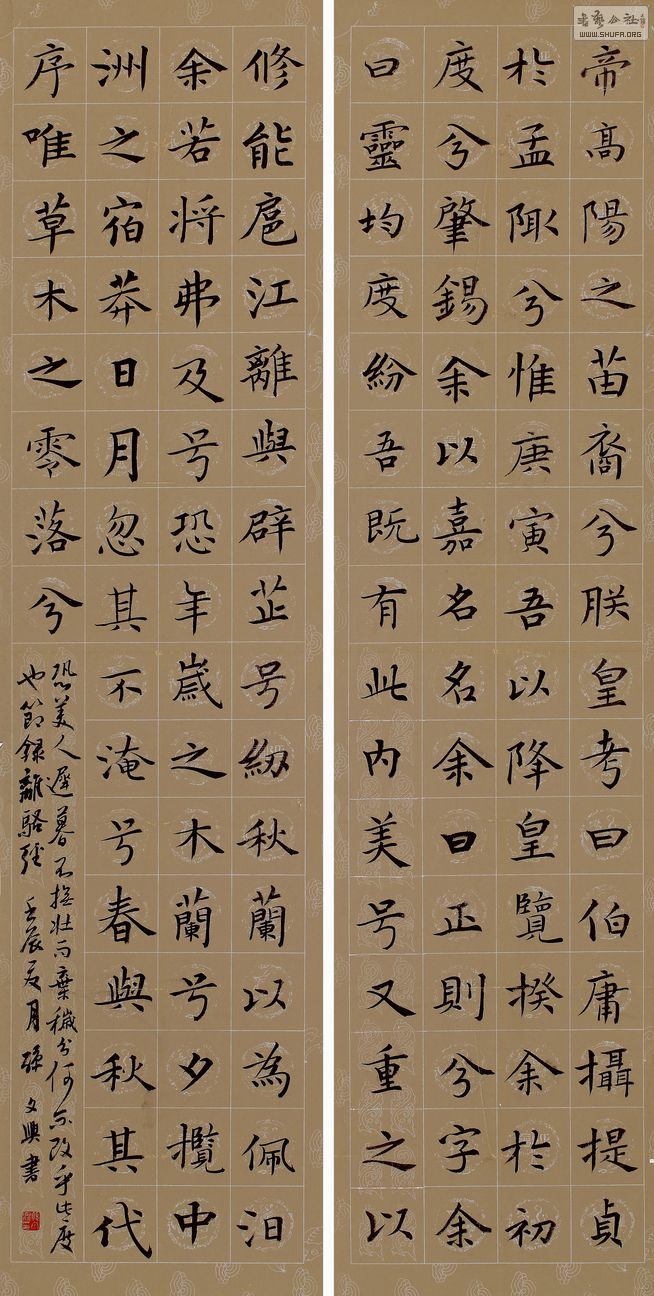 書藝公社
WWW.SHUFA.ORG
帝高陽之苗裔兮朕皇考曰伯庸攝提貞
於孟陬兮惟庚寅吾以降皇覽揆余於初
度兮肇錫余以嘉名名余曰正則兮字余
曰靈均度紛吾既有此內美号又重之以
修能扈江離與辟芷号紉秋蘭以為佩汩
余若将弗及号恐年歲之木蘭号夕攬中
洲之宿莽日月忽其不淹号春與秋其代
序唯草木之零落兮
恐美人遲暮不撫壯而棄穢兮何不改乎此度
也節録離騷經 壬辰夏月 文興書